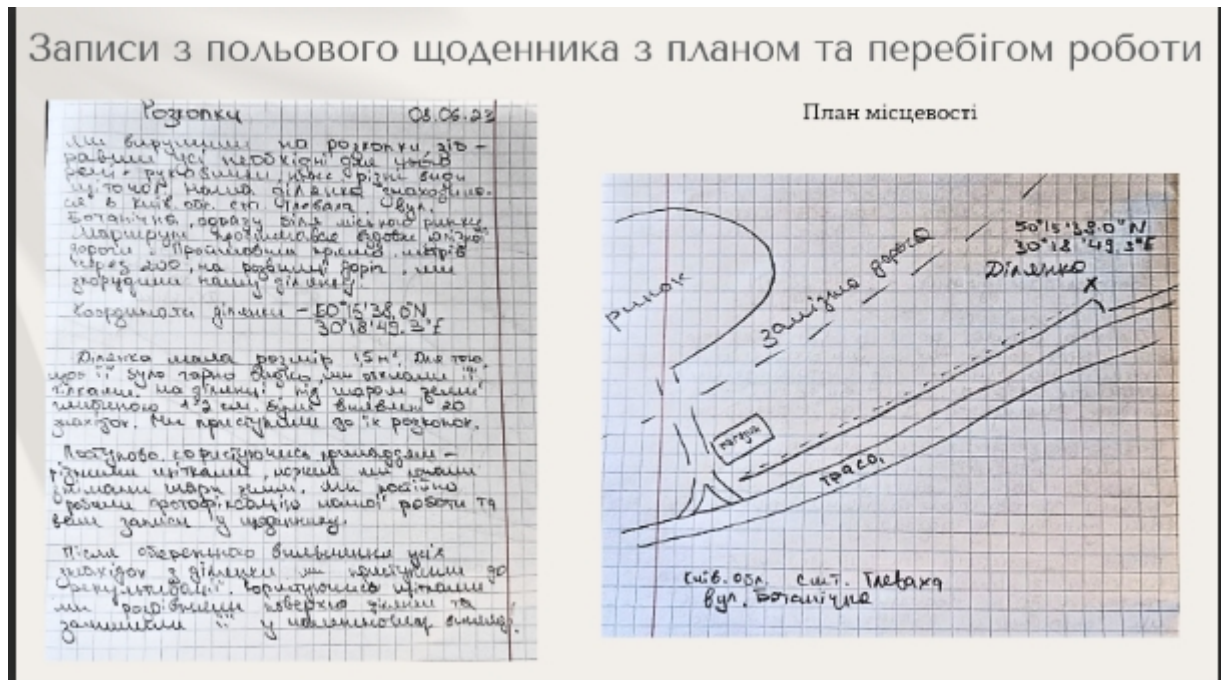 Записи з польового щоденника з планом та перебігом роботи
Розкопки 08.06.23
Ми вирушили на розкопки, зіб-
равши усі необхідні для цього
речі - рукавишки, різні види
щіточок. Наша ділянка знаходила-
ся в Київ. обл. смт. Глеваха, вул.
Ботанічна, одразу біля міського ринку.
Маршрут пролягав вздовж залізної
дороги. Пройшовши прямо метрів
через 200, на розвилці доріг, ми
знайшли нашу ділянку.
Координати ділянки - 50°15'38,0"N
30°18'49.3"E
Ділянка мала розмір 15м². Для того,
щоб її було гарно видно, ми оклали її
гілками. На ділянці під шаром землі
глибиною 1-2 см. були виявлені 20
знахідок. Ми приступили до їх розкопок.
Поступово, користуючись приладдям -
різними щітками, ми
знімали шари землі. Ми постійно
робили фотофіксацію нашої роботи та
вели записи у щоденнику.
Після обережного вилучення усіх
знахідок з ділянки ми приступили до
рекультивації. Користуючись щітками
ми розрівняли поверхню ділянки та
залишили її у вигляді.
План місцевості
ринок
залізна дорога
50°15'38.0"N
30°18'49.3"E
Ділянка
х
магазин
траса
Київ. обл. смт. Глеваха
вул. Ботанічна